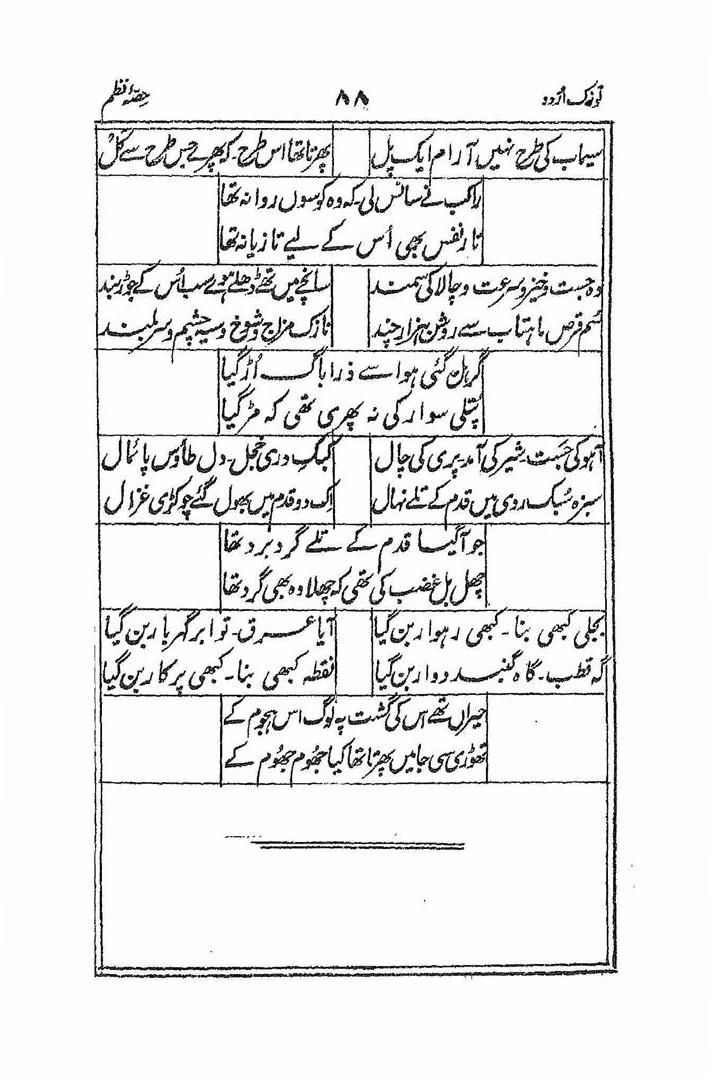 توزک اردو ۸۸ حصۂ نظم
سیماب کی طرح نہیں آرام ایک پل پھرتا تھا اس طرح۔ کہ پھرے جس طرح سے کل
راکب نے سانس لی۔ کہ وہ کوسوں روانہ تھا
تار نفس بھی اُس کے لیے تازیانہ تھا
وہ جست و خیز و سرعت و چالاکی سمند سانچے میں تھے ڈھلے ہوئے سب اُس کے جوڑ بند
سُم قرص ماہتاب سے روشن ہزار چند نازک مزاج و شوخ و سیہ چشم و سر بلند
گر ہل گئی ہوا سے ذرا باگ اُڑ گیا
پُتلی سوار کی نہ پھری تھی کہ مڑ گیا
آہو کی جَست۔ شیر کی آمد۔ پری کی چال کبکِ دری خجل۔ دلِ طاؤس پائمال
سبزہ سُبک روی میں قدم کے تلے نہال اِک دو قدم میں بھول گئے چوکڑی غزال
جو آ گیا قدم کے تلے گرد برد تھا
چھل بل غضب کی تھی کہ چھلاوہ بھی گرد تھا
بجلی کبھی بنا۔ کبھی رہوار بن گیا آیا عرق۔ تو ابر گہر بار بن گیا
گہ قطب۔ گاہ گنبد دوار بن گیا نقطہ کبھی بنا۔ کبھی پرکار بن گیا
حیراں تھے اس کی گشت پہ لوگ اس ہجوم کے
تھوڑی سی جا میں پھرتا تھا کیا جھُوم جھُوم کے